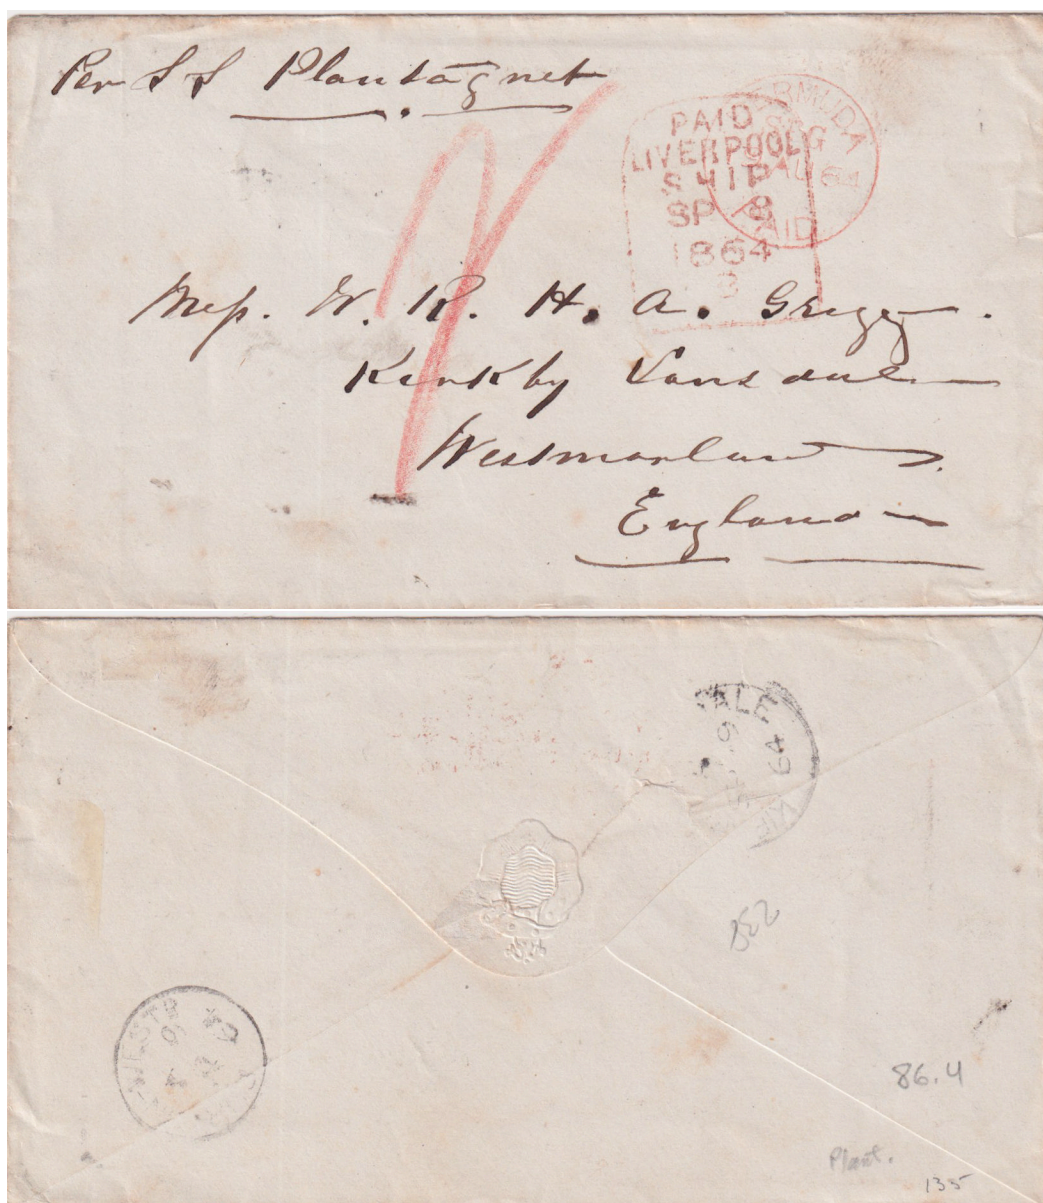 Per S S Plantagnet
PAID
LIVERPOOL
SHIP
SP 8
1864
BERMUDA
AU
64
PAID
Mess. W. R. H. A. Gregg.
Kirkby Lonsdale
Westmorland
England
DALE
9
64
86.4
Plant.
135